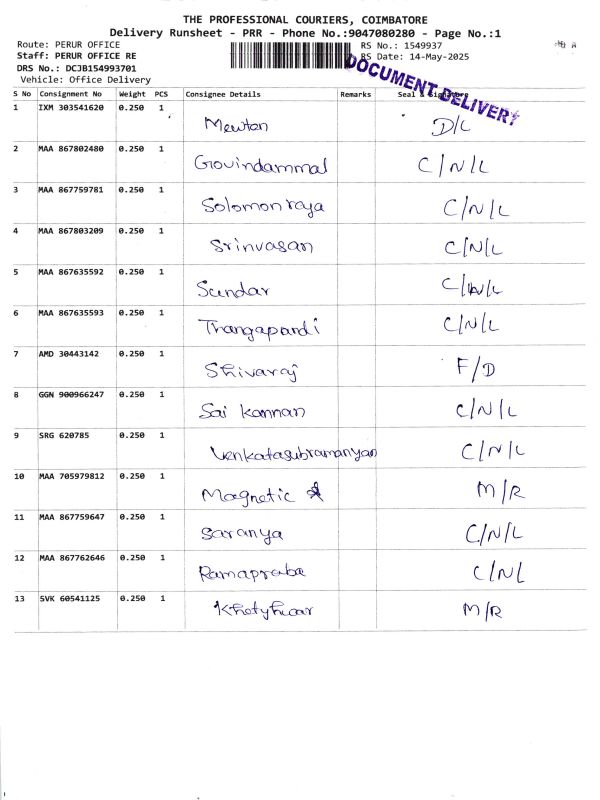 THE PROFESSIONAL COURIERS, COIMBATORE
Delivery Runsheet - PRR - Phone No.:9047080280 - Page No.:1
Route: PERUR OFFICE RS No.: 1549937
Staff: PERUR OFFICE RE RS Date: 14-May-2025
DRS No.: DCJB154993701
Vehicle: Office Delivery
DOCUMENT DELIVERY
S No Consignment No Weight PCS Consignee Details Remarks Seal & Signature
1 IXM 303541620 0.250 1 Mewton D/L
2 MAA 867802480 0.250 1 Govindammal C/N/L
3 MAA 867759781 0.250 1 Solomon raja C/N/L
4 MAA 867803209 0.250 1 Srinvasan C/N/L
5 MAA 867635592 0.250 1 Sundar C/N/L
6 MAA 867635593 0.250 1 Thangapandi C/N/L
7 AMD 30443142 0.250 1 Shivaraj F/D
8 GGN 900966247 0.250 1 Sai kannan C/N/L
9 SRG 620785 0.250 1 Venkatasubramanyan C/N/L
10 MAA 705979812 0.250 1 Magnetic M/R
11 MAA 867759647 0.250 1 Saranya C/N/L
12 MAA 867762646 0.250 1 Ramapraba C/N/L
13 SVK 60541125 0.250 1 M/R